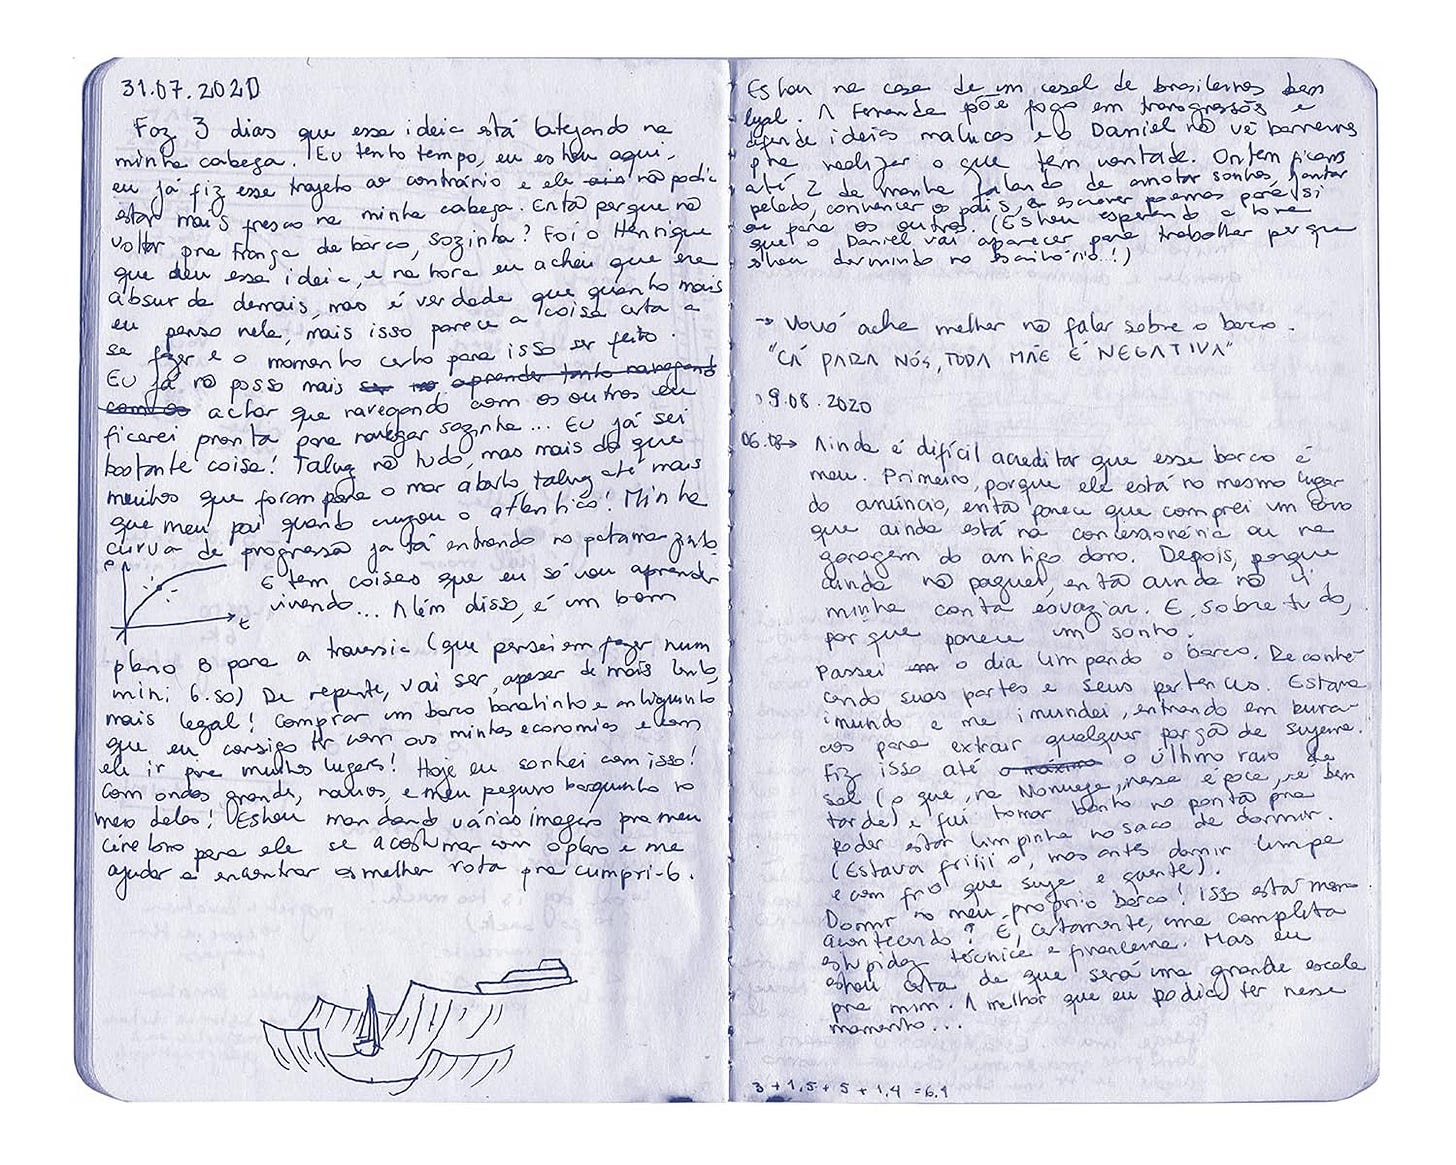 31.07.2020
Faz 3 dias que essa ideia está latejando na
minha cabeça. Eu tenho tempo, eu estou aqui,
eu já fiz esse trajeto ao contrário e ele não podia
estar mais fresco na minha cabeça. Então por que não
voltar pra França de barco, sozinha? Foi o Henrique
que deu essa ideia, e na hora eu achei que era
absurda demais, mas é verdade que quanto mais
eu penso nela, mais isso parece a coisa certa a
se fazer e o momento certo para isso ser feito.
Eu já não posso mais aprender tanto navegando
com os achar que navegando com os outros eu
ficarei pronta para navegar sozinha... Eu já sei
bastante coisa! Talvez não tudo, mas mais do que
muitos que foram para o mar aberto talvez até mais
que meu pai quando cruzou o atlântico! Minha
curva de progressão já tá entrando no patamarzinho
P
t
E tem coisas que eu só vou aprender
vivendo... Além disso, é um bom
plano B para a travessia (que pensei em fazer num
mini 6.50) De repente, vai ser, apesar de mais lento,
mais legal! Comprar um barco baratinho e antiguinho
que eu consigo ter com as minhas economias e com
ele ir pra muitos lugares! Hoje eu sonhei com isso!
Com ondas grandes, navios, e meu pequeno barquinho no
meio deles! Estou mandando várias imagens pra meu
cérebro para ele se acostumar com o plano e me
ajudar a encontrar a melhor rota pra cumpri-lo.
Estou na casa de um casal de brasileiros bem
legal. A Fernanda põe fogo em transgressões e
defende ideias malucas e o Daniel não vê barreiras
pra realizar o que tem vontade. Ontem ficamos
até 2 da manhã falando de anotar sonhos, jantar
pelado, convencer os pais, escrever poemas para si
ou para os outros. (Estou esperando a hora
que o Daniel vai aparecer para trabalhar porque
estou dormindo no escritório..!)
→ Vovó acha melhor não falar sobre o barco.
"CÁ PARA NÓS, TODA MÃE É NEGATIVA"
09.08.2020
06.08→ Ainda é difícil acreditar que esse barco é
meu. Primeiro, porque ele está no mesmo lugar
do anúncio, então parece que comprei um carro
que ainda está na concessionária ou na
garagem do antigo dono. Depois, porque
ainda não paguei, então ainda não vi
minha conta esvaziar. E, sobretudo,
porque parece um sonho.
Passei o dia limpando o barco. Reconhe-
cendo suas partes e seus pertences. Estava
imundo e me imundei, entrando em bura-
cos para extrair qualquer porção de sujeira.
Fiz isso até o máximo o último raio de
sol (o que, na Noruega, nessa época, é bem
tarde) e fui tomar banho no pontão pra
poder estar limpinha no saco de dormir.
(Estava friiiio, mas antes dormir limpa
e com frio que suja e quente).
Dormir no meu próprio barco! Isso está mesmo
acontecendo? É, certamente, uma completa
estupidez técnica e financeira. Mas eu
estou certa de que será uma grande escola
pra mim. A melhor que eu podia ter nesse
momento...
3 + 1,5 + 5 + 1,4 = 6,9